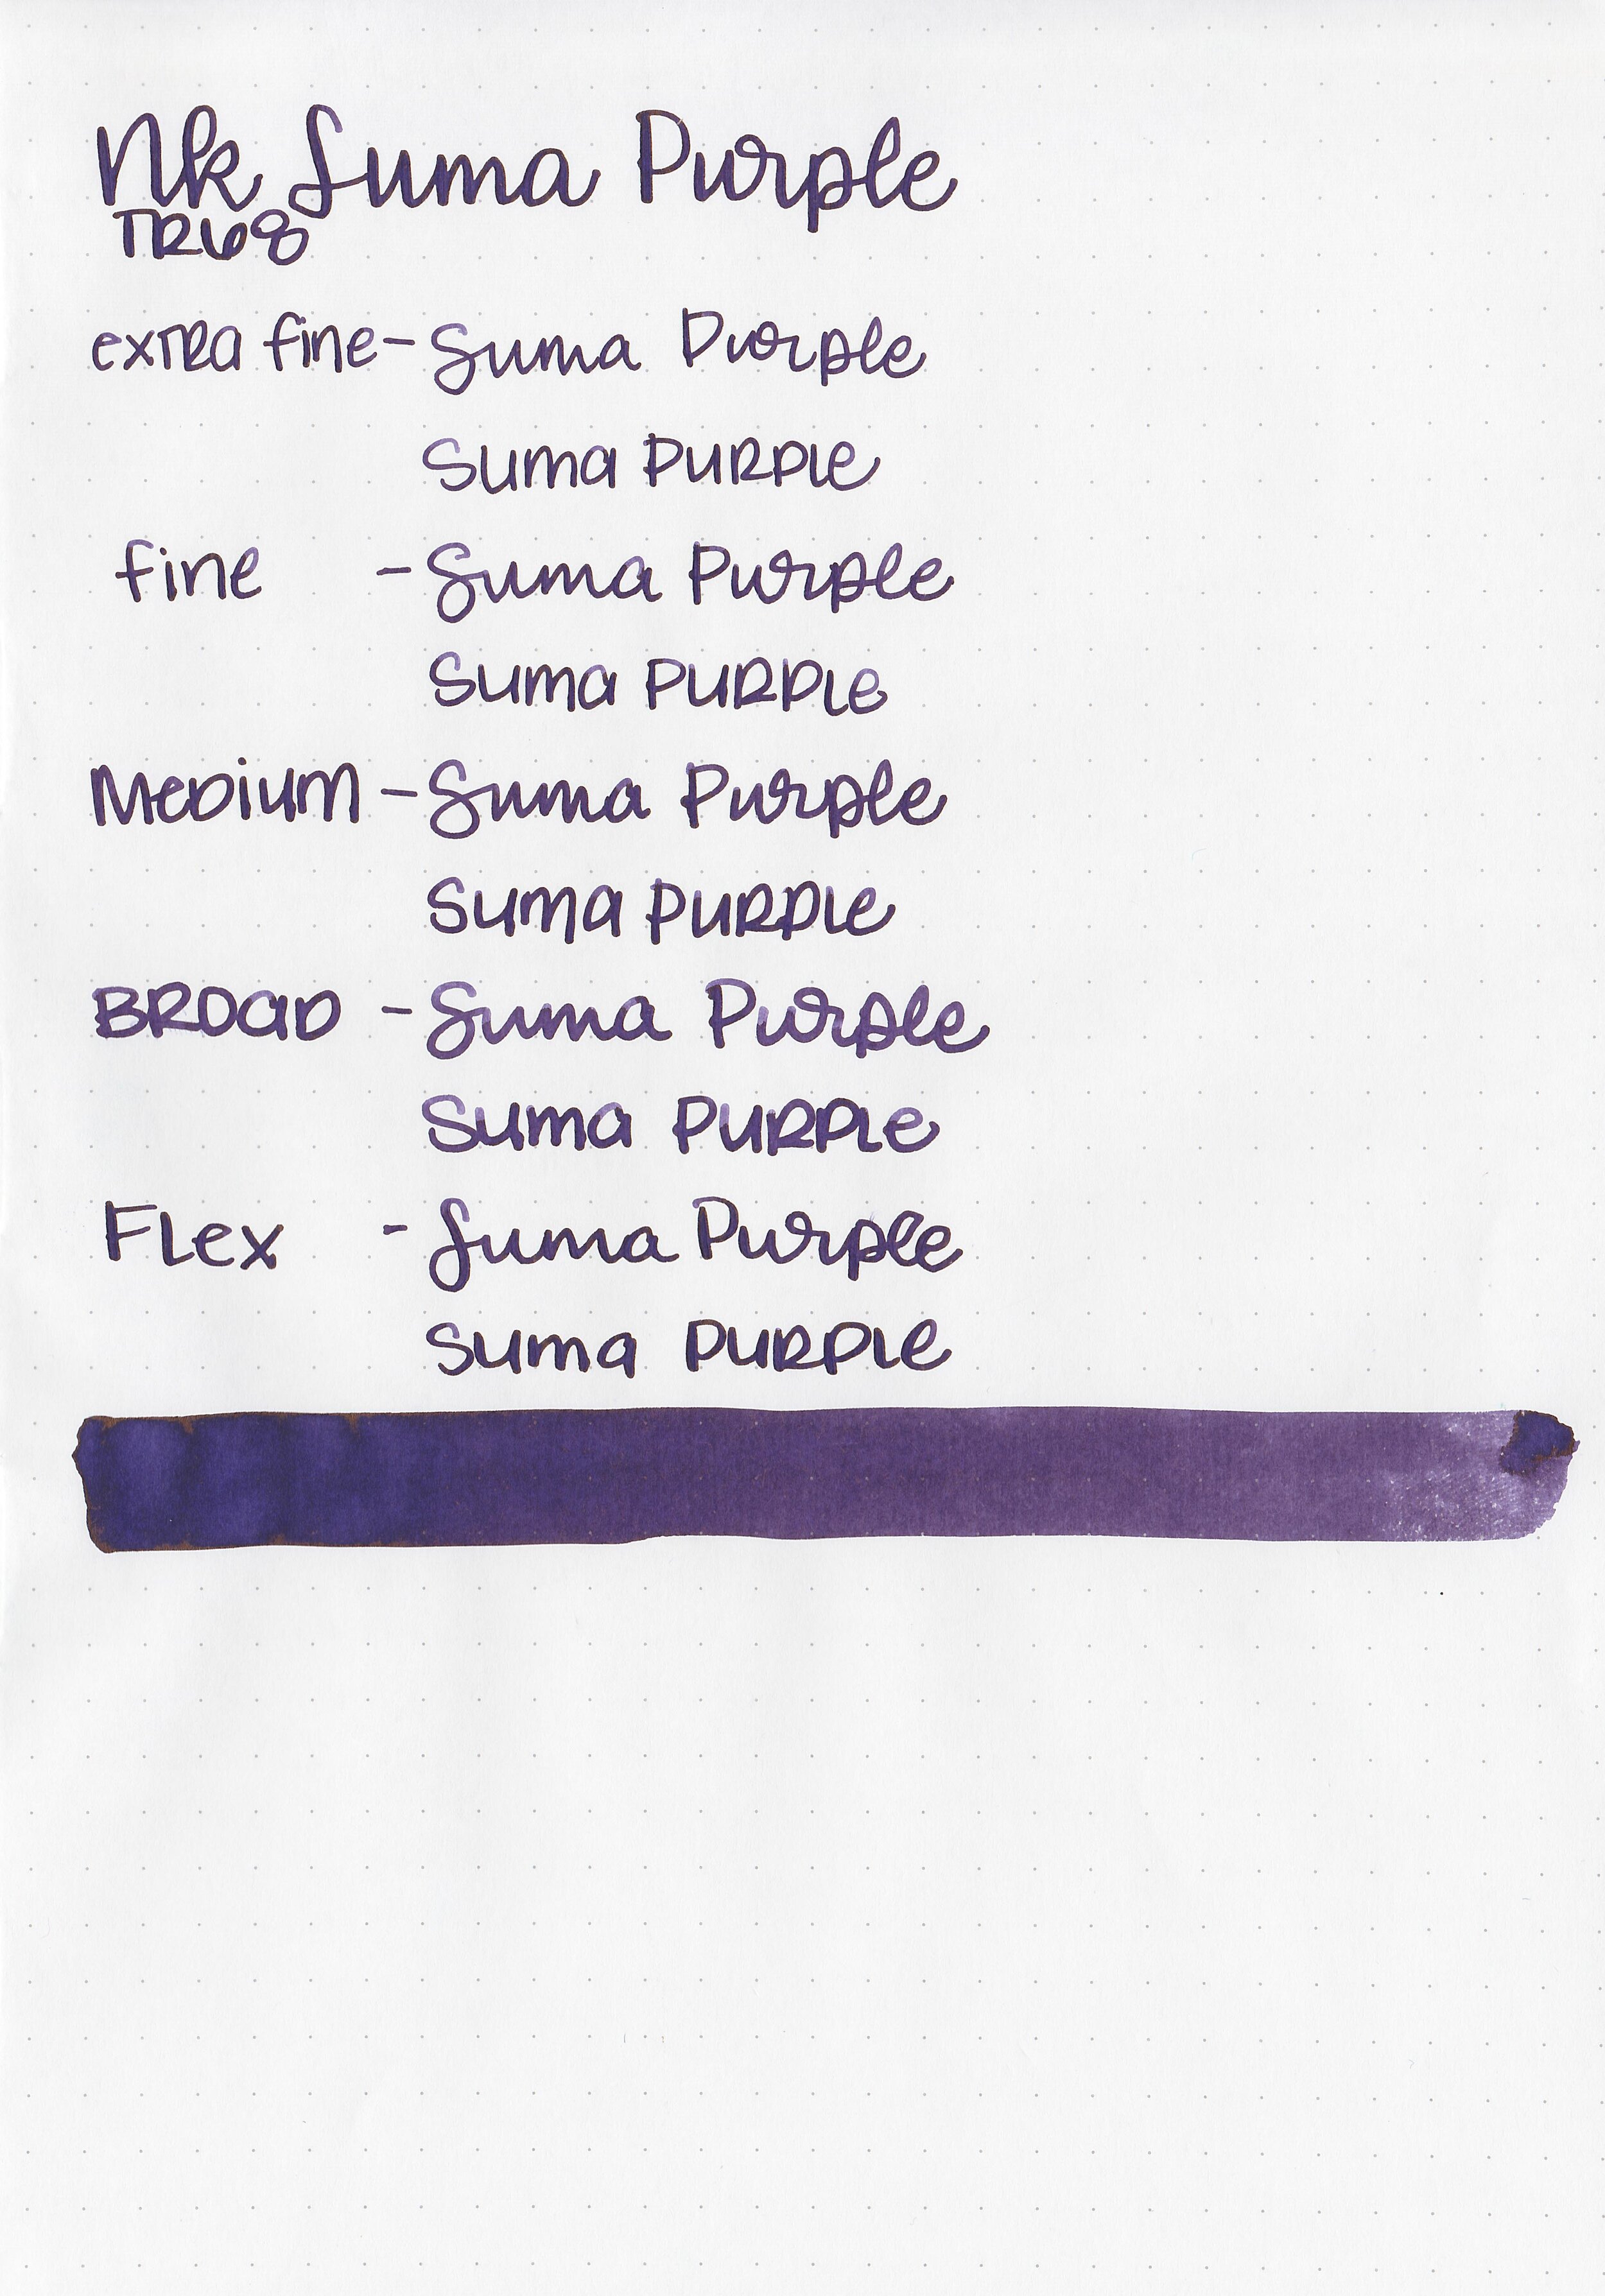 Nk Suma Purple
TR68
extra fine - Suma Purple
Suma Purple
fine - Suma Purple
Suma Purple
Medium - Suma Purple
Suma Purple
Broad - Suma Purple
Suma Purple
Flex - Suma Purple
Suma Purple